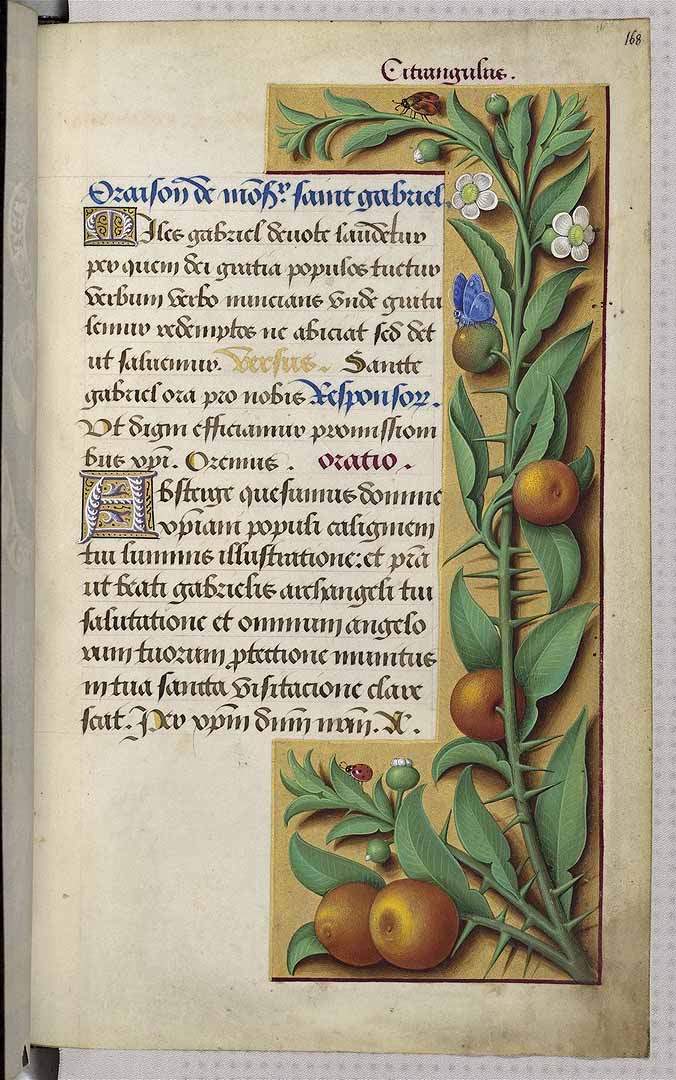 168
Citrangulus.
Oraison de mōsʳ saint gabriel
Miles gabriel deuote laudetur
per quem dei gratia populos tuetur
verbum verbo nuncians vnde gratu
lemur redemptos ne abiciat sed det
ut saluemur. Versus. Sancte
gabriel ora pro nobis Responsor.
Vt digni efficiamur promissioni
bus xpi. Oremus. oratio.
Absterge quesumus domine
xpiani populi caliginem
tui luminis illustratione: et pn̄a
ut beati gabrielis archangeli tui
salutatione et omnium angelo
rum tuorum ꝓtectione munitus
in tua sancta visitacione clare
scat. Per xpm̄ dūm nrm̄. A.